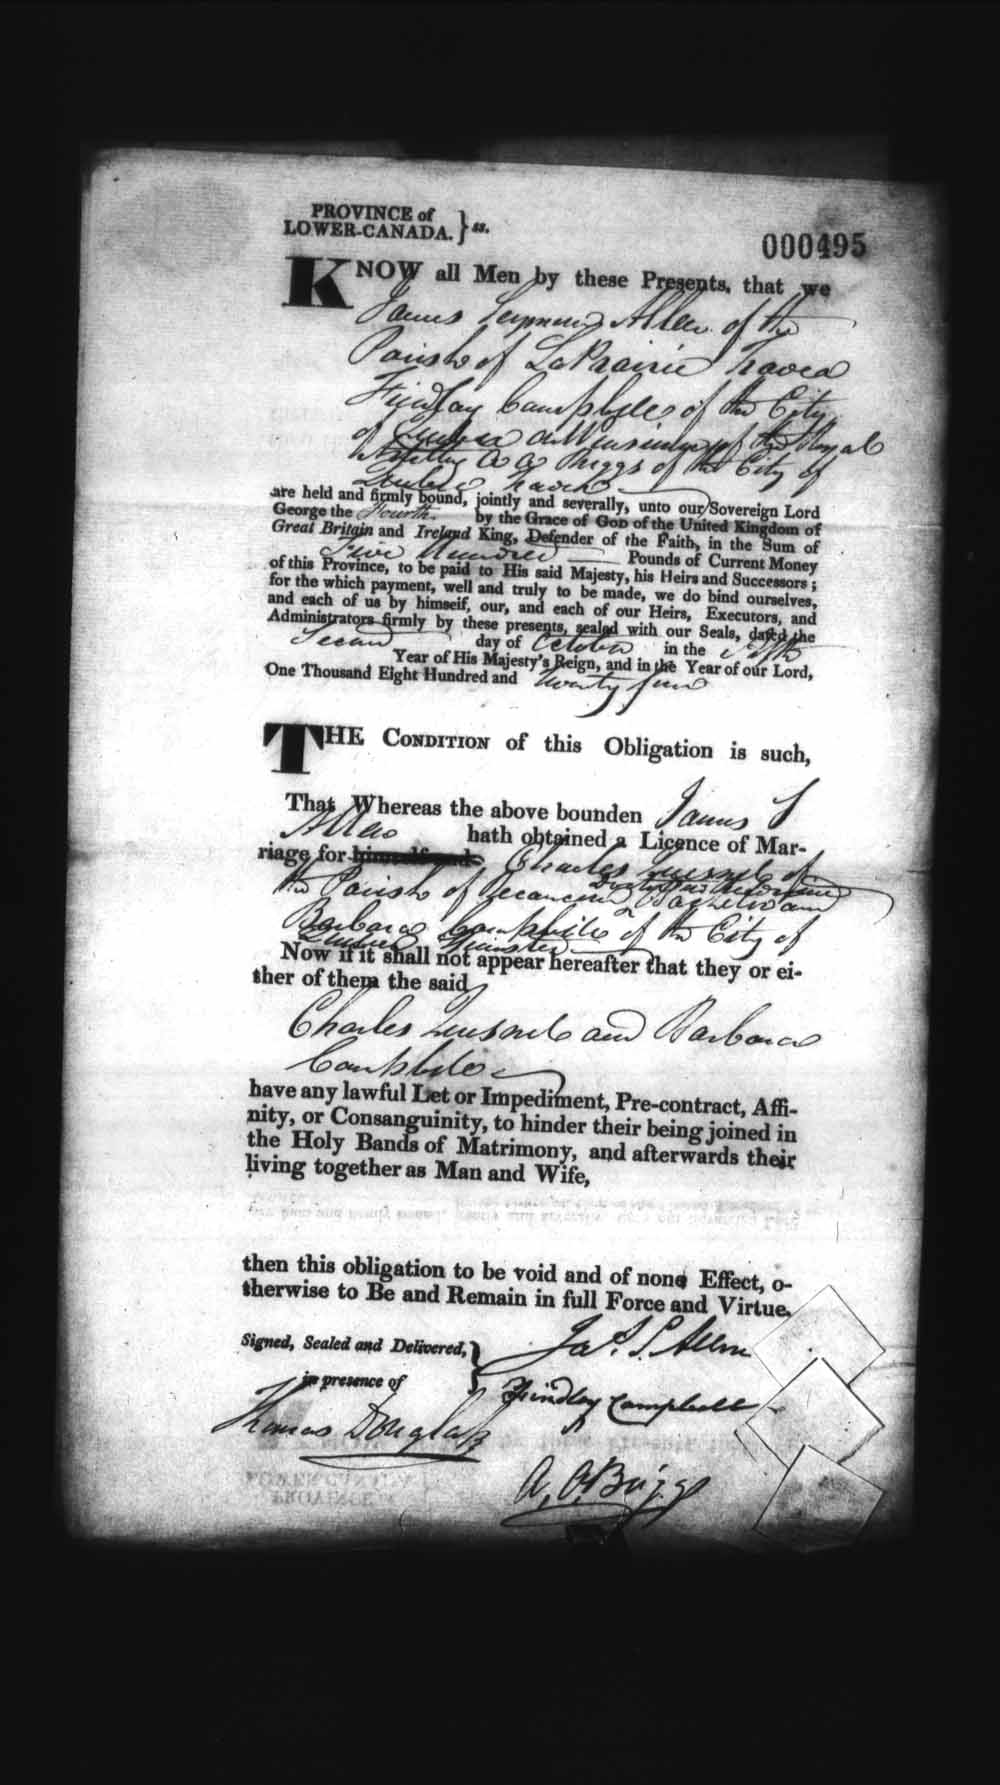 PROVINCE of
LOWER-CANADA. } ss.
000495
KNOW all Men by these Presents, that we
James Seymour Allen of the
Parish of LaPrairie
Findlay Campbell of the City
of Quebec of the Royal
Artillery A A Briggs of the City of
Quebec
are held and firmly bound, jointly and severally, unto our Sovereign Lord
George the Fourth by the Grace of GOD of the United Kingdom of
Great Britain and Ireland King, Defender of the Faith, in the Sum of
Five Hundred Pounds of Current Money
of this Province, to be paid to His said Majesty, his Heirs and Successors;
for the which payment, well and truly to be made, we do bind ourselves,
and each of us by himself, our, and each of our Heirs, Executors, and
Administrators firmly by these presents, sealed with our Seals, dated the
Second day of October in the Fifth
Year of His Majesty's Reign, and in the Year of our Lord,
One Thousand Eight Hundred and twenty four
THE CONDITION of this Obligation is such,
That Whereas the above bounden James S
Allen hath obtained a Licence of Mar-
riage for himself and Charles of
Doctor in Medicine
the Parish of Bachelor and
Barbara Campbell of the City of
Quebec Spinster
Now if it shall not appear hereafter that they or ei-
ther of them the said
Charles and Barbara
Campbell
have any lawful Let or Impediment, Pre-contract, Affi-
nity, or Consanguinity, to hinder their being joined in
the Holy Bands of Matrimony, and afterwards their
living together as Man and Wife,
then this obligation to be void and of none Effect, o-
therwise to Be and Remain in full Force and Virtue.
Signed, Sealed and Delivered, }
in presence of
Jas. S. Allen
Findlay Campbell
Thomas Douglass
A. A. Briggs